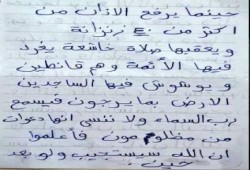 حينما يرفع الاذان من
اكثر من ٤ زنزانة
و يعقبها صلاة خاشعة يغرد
فيها الأئمة وهم قانطين
و يوشوش فيها الساجدين
الارض بما يرجون فيسمع
رب السماء ولا ننسى انها دعوات
من مظلومون فأعلموا
ان الله سيستجيب ولو بعد
حين